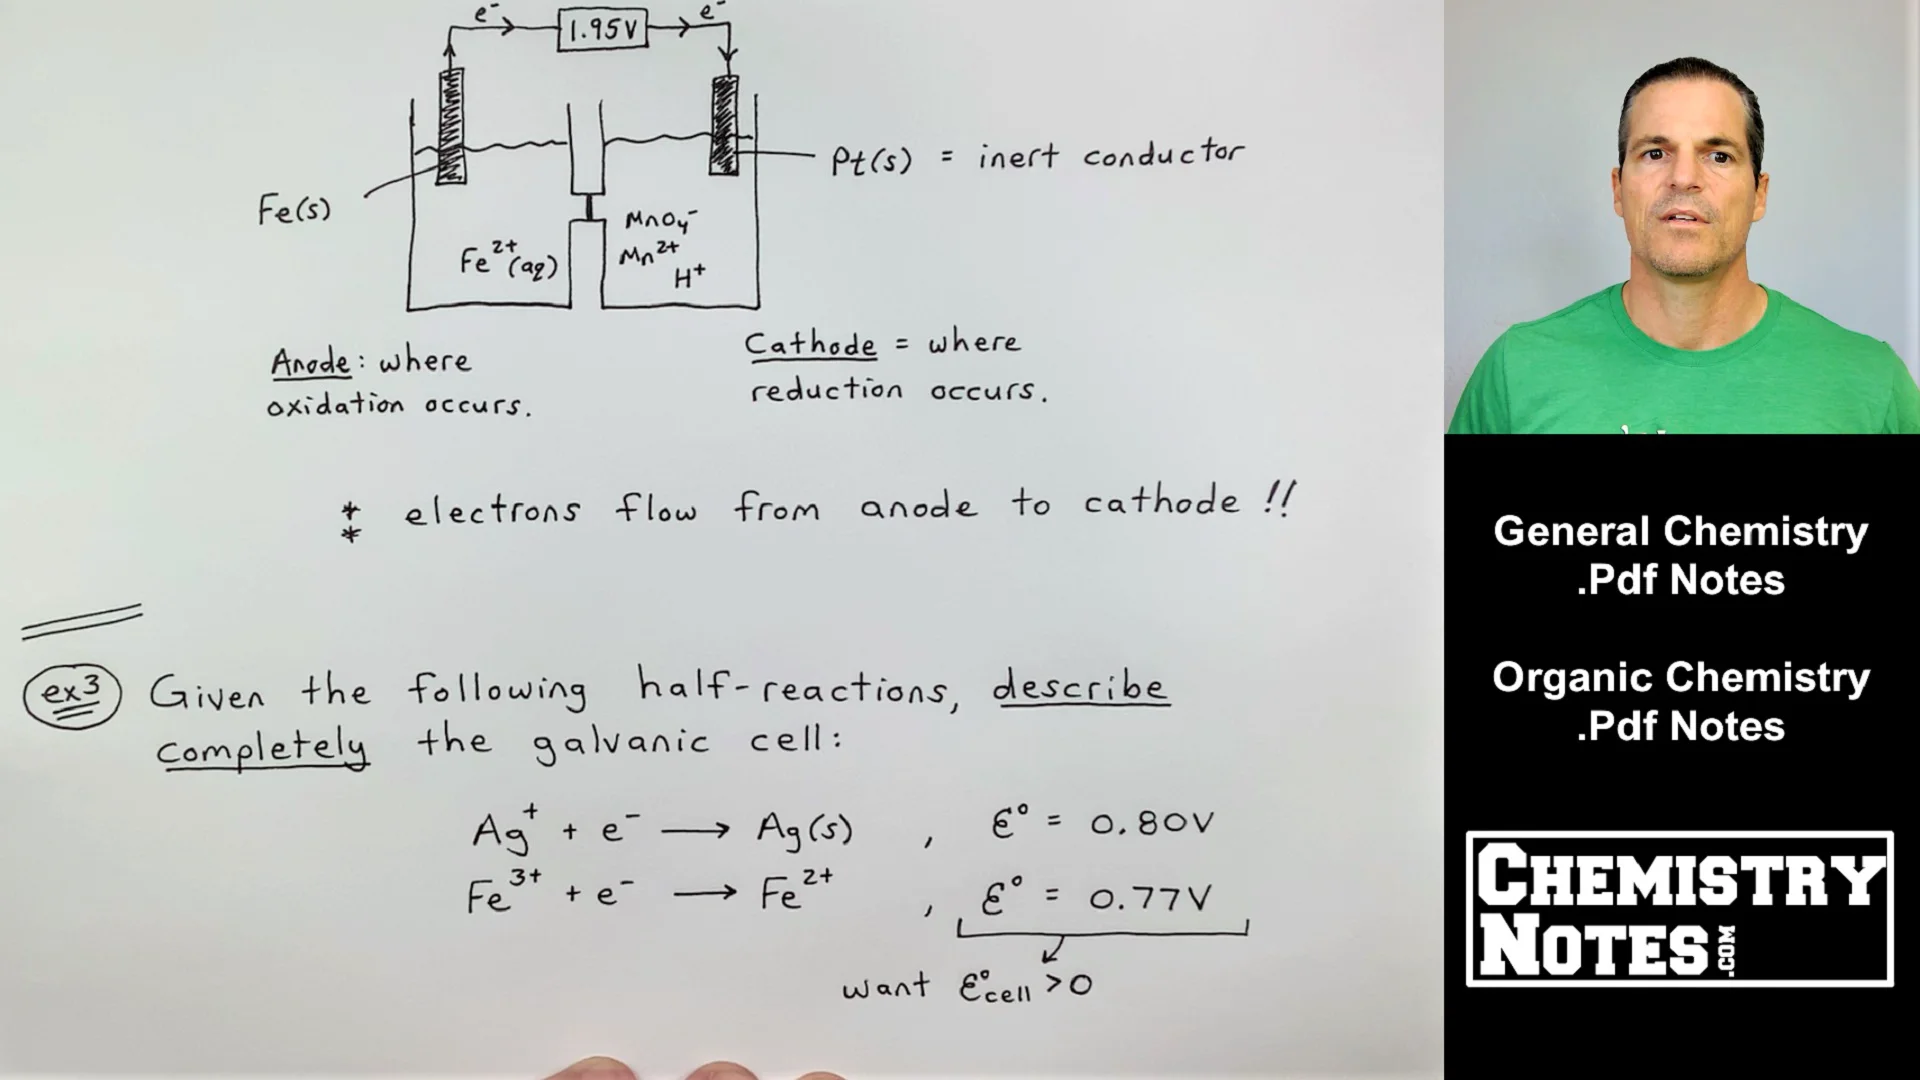 e⁻ 1.95V e⁻
Pt(s) = inert conductor
Fe(s)
MnO₄⁻
Fe²⁺(aq) Mn²⁺
H⁺
Anode: where
oxidation occurs.
Cathode = where
reduction occurs.
** electrons flow from anode to cathode !!
ex3 Given the following half-reactions, describe
completely the galvanic cell:
Ag⁺ + e⁻ → Ag(s) , ℰ° = 0.80V
Fe³⁺ + e⁻ → Fe²⁺ , ℰ° = 0.77V
want ℰ°cell >0
General Chemistry
.Pdf Notes
Organic Chemistry
.Pdf Notes
CHEMISTRY
NOTES.COM